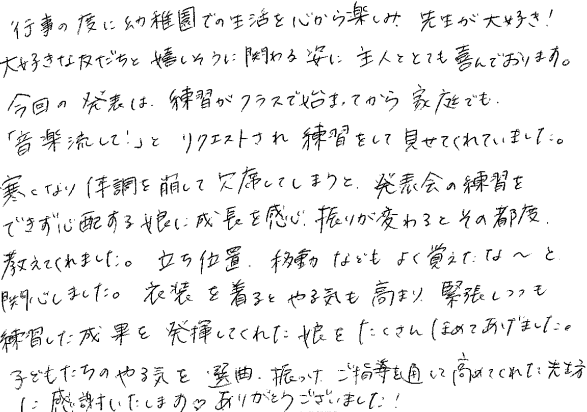 行事の度に幼稚園での生活を心から楽しみ、先生が大好き!
大好きな友だちと嬉しそうに関わる姿に主人ととても喜んでおります。
今回の発表は、練習がクラスで始まってから家庭でも、
「音楽流して!」とリクエストされ練習をして見せてくれていました。
寒くなり体調を崩して欠席してしまうと、発表会の練習を
できず心配する娘に成長を感じ、振りが変わるとその都度、
教えてくれました。立ち位置、移動などもよく覚えたな〜と
関心しました。衣装を着るとやる気も高まり、緊張しつつも
練習した成果を発揮してくれた娘をたくさんほめてあげました。
子どもたちのやる気を選曲、振つけ、ご指導を通して高めてくれた先生方
に感謝いたします♡ありがとうございました!